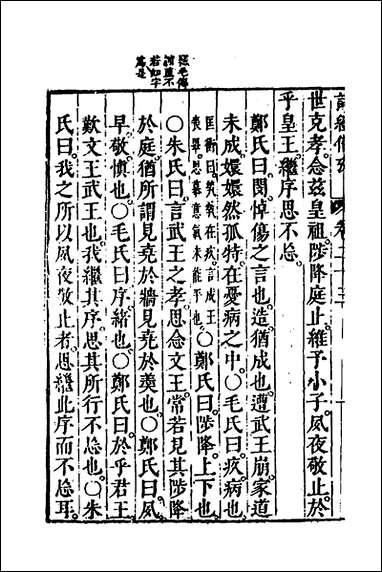 庭毛傳
訓直不
若如字
爲是
卷二十三
世克孝。念茲皇祖。陟降庭止。維予小子。夙夜敬止。於
乎皇王。繼序思不忘。
鄭氏曰。閔悼傷之言也。造。猶成也。遭武王崩。家道
未成。嬛嬛然孤特。在憂病之中。〇毛氏曰。疚。病也
匡衡曰。煢煢在疚。言成王
喪畢。思慕意氣未能平也。
〇鄭氏曰。陟降。上下也
〇朱氏曰。言武王之孝。思念文王。常若見其陟降
於庭。猶所謂見堯於牆。見堯於羹也。〇鄭氏曰。夙
早。敬。慎也。〇毛氏曰。序。緒也。〇鄭氏曰。於乎君王
歎文王武王也。我繼其序。思其所行不忘也。〇朱
氏曰。我之所以夙夜敬止者。思繼此序而不忘耳。